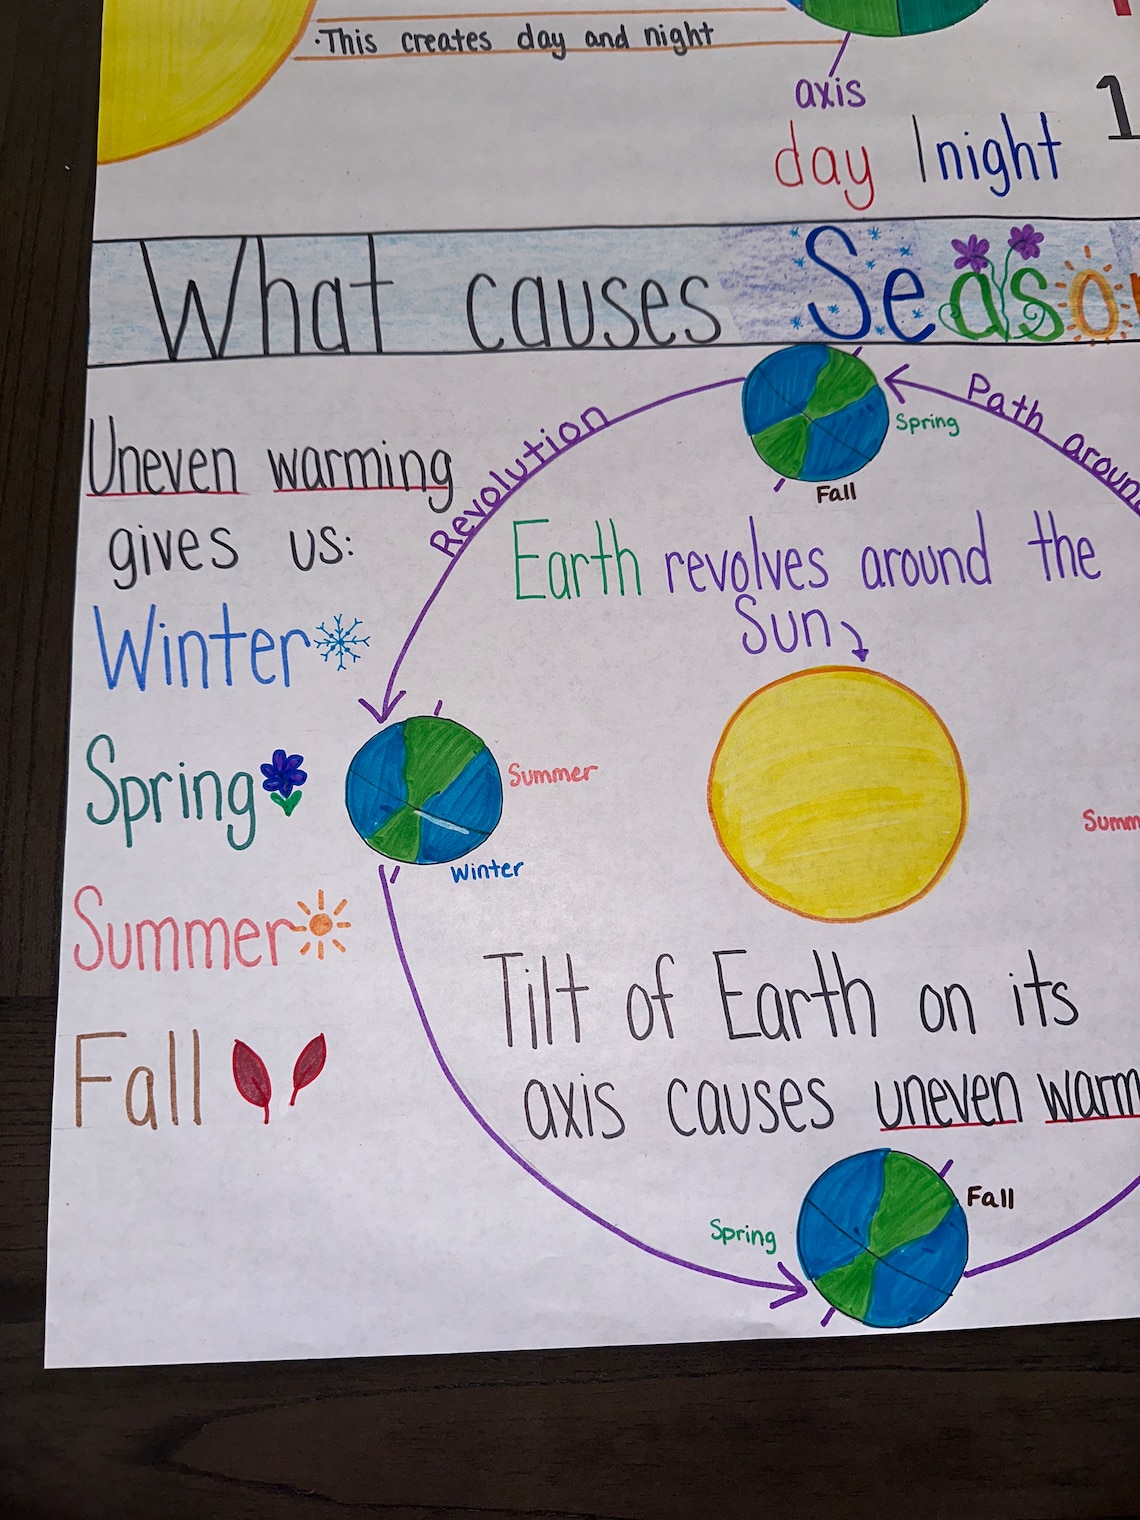 ·This creates day and night
axis
day | night
1
What causes Seaso
Revolution
Path aroun
Spring
Fall
Uneven warming
gives us:
Winter
Spring
Summer
Fall
Earth revolves around the
Sun
Summer
Winter
Summ
Tilt of Earth on its
axis causes uneven warm
Spring
Fall